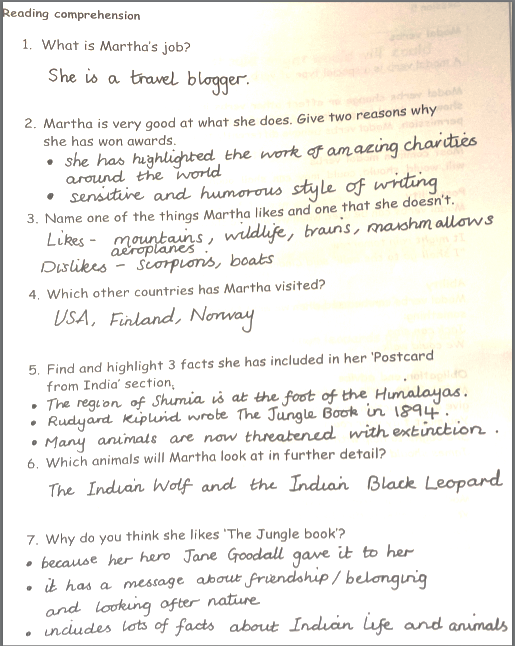 Reading comprehension
1. What is Martha's job?
She is a travel blogger.
2. Martha is very good at what she does. Give two reasons why
she has won awards.
• she has highlighted the work of amazing charities
around the world
• sensitive and humorous style of writing
3. Name one of the things Martha likes and one that she doesn't.
Likes - mountains, wildlife, trains, marshmallows
aeroplanes.
Dislikes - scorpions, boats
4. Which other countries has Martha visited?
USA, Finland, Norway
5. Find and highlight 3 facts she has included in her 'Postcard
from India' section.
• The region of Shimia is at the foot of the Himalayas.
• Rudyard Kiplind wrote The Jungle Book in 1894.
• Many animals are now threatened with extinction.
6. Which animals will Martha look at in further detail?
The Indian Wolf and the Indian Black Leopard
7. Why do you think she likes 'The Jungle book'?
• because her hero Jane Goodall gave it to her
• it has a message about friendship/belonging
and looking after nature
• includes lots of facts about Indian life and animals